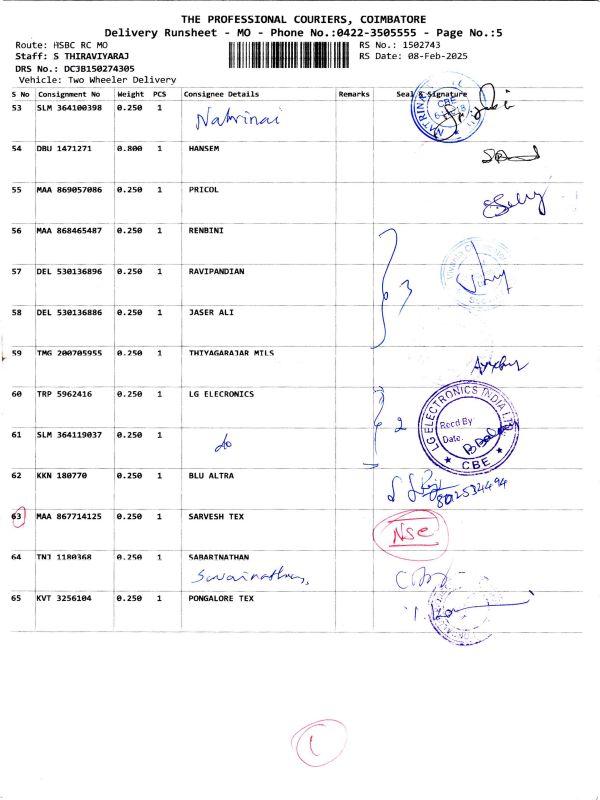 THE PROFESSIONAL COURIERS, COIMBATORE
Delivery Runsheet - MO - Phone No.:0422-3505555 - Page No.:5
Route: HSBC RC MO
RS No.: 1502743
Staff: S THIRAVIYARAJ
RS Date: 08-Feb-2025
DRS No.: DCJB150274305
Vehicle: Two Wheeler Delivery
S No Consignment No Weight PCS Consignee Details Remarks Seal & Signature
53 SLM 364100398 0.250 1
Natrinai
CBE
54 DBU 1471271 0.800 1 HANSEM
55 MAA 869057086 0.250 1 PRICOL
56 MAA 868465487 0.250 1 RENBINI
57 DEL 530136896 0.250 1 RAVIPANDIAN
3
58 DEL 530136886 0.250 1 JASER ALI
59 TMG 200705955 0.250 1 THIYAGARAJAR MILS
60 TRP 5962416 0.250 1 LG ELECRONICS
2
LG ELECTRONICS INDIA LTD.
Recd By
Date.
CBE
61 SLM 364119037 0.250 1
do
62 KKN 180770 0.250 1 BLU ALTRA
8025324494
63 MAA 867714125 0.250 1 SARVESH TEX
NSC
64 TNJ 1180368 0.250 1 SABARINATHAN
65 KVT 3256104 0.250 1 PONGALORE TEX
1